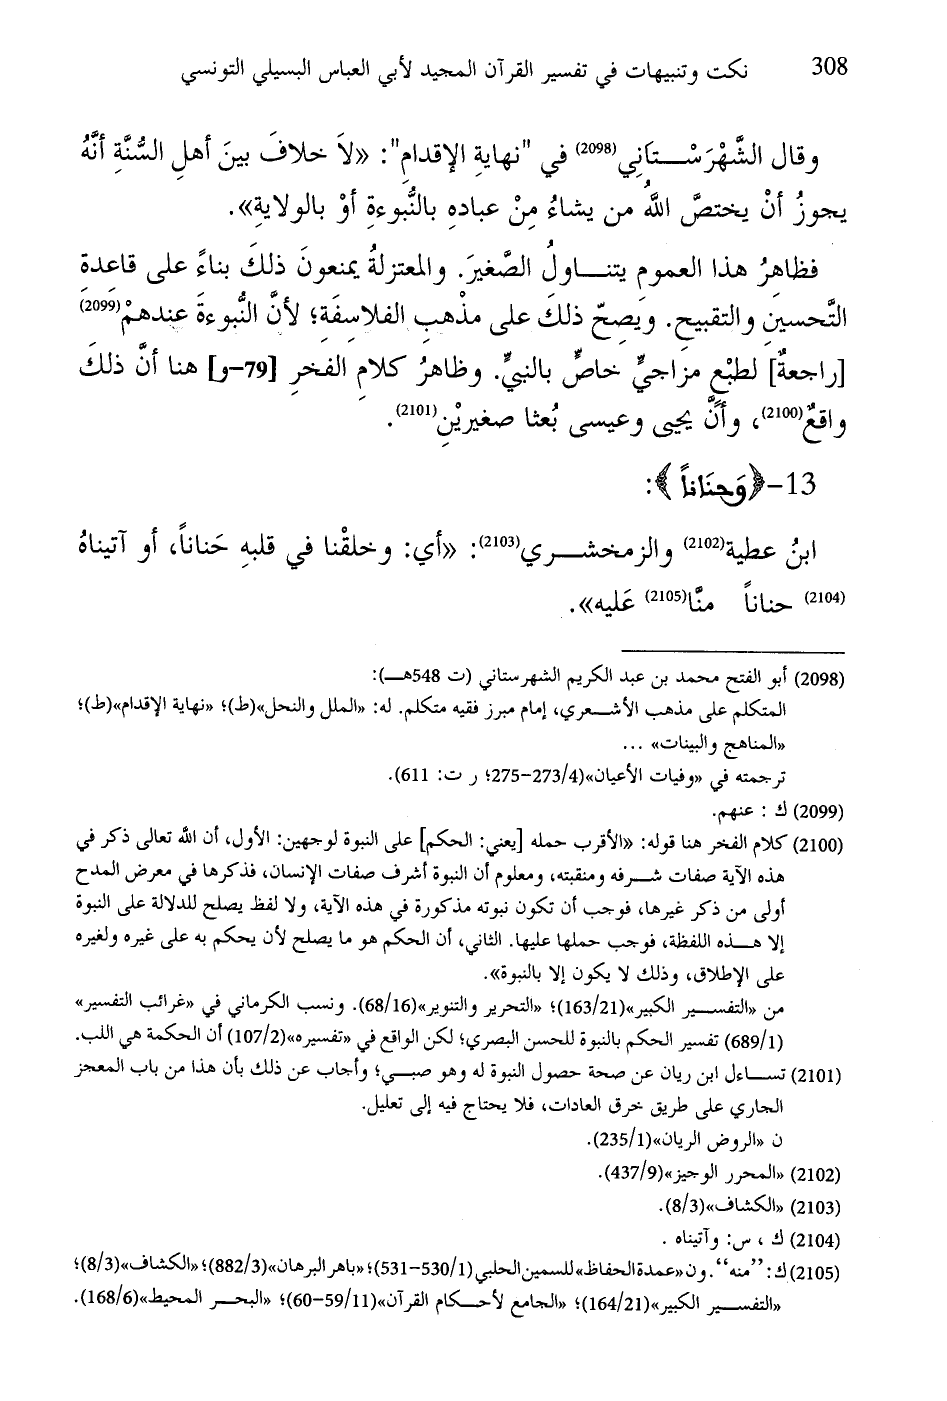 308 نكت وتنبيهات في تفسير القرآن المجيد لأبي العباس البسيلي التونسي
وقال الشَّهْرَسْتَانِي(2098) في "نهايةِ الإقدامِ": «لاَ خلافَ بينَ أهلِ السُّنَّةِ أنَّهُ
يجوزُ أنْ يختصَّ اللهُ من يشاءُ مِنْ عبادِه بالنُّبوءةِ أوْ بالولايةِ».
فظاهرُ هذا العمومِ يتناولُ الصَّغيرَ. والمعتزلةُ يمنعونَ ذلكَ بناءً على قاعدةِ
التَّحسينِ والتقبيحِ. ويَصحّ ذلكَ على مذْهبِ الفلاسفَةِ؛ لأنَّ النُّبوءةَ عندهمْ(2099)
[راجعةٌ] لطبْعٍ مزَاجيٍّ خاصٍّ بالنبيِّ. وظاهرُ كلامِ الفخرِ [79-و] هنا أنَّ ذلكَ
واقعٌ(2100)، وأنَّ يحيى وعيسى بُعثا صغيريْنِ(2101).
13-﴿وَحَنَاناً﴾:
ابنُ عطية(2102) والزمخشري(2103): «أي: وخلقْنا في قلبهِ حَناناً، أو آتيناهُ
(2104) حناناً منَّا(2105) عَليه».
(2098) أبو الفتح محمد بن عبد الكريم الشهرستاني (ت 548هـ):
المتكلم على مذهب الأشعري، إمام مبرز فقيه متكلم. له: «الملل والنحل»(ط)؛ «نهاية الإقدام»(ط)؛
«المناهج والبينات» ...
ترجمته في «وفيات الأعيان»(273/4-275؛ ر ت: 611).
(2099) ك : عنهم.
(2100) كلام الفخر هنا قوله: «الأقرب حمله [يعني: الحكم] على النبوة لوجهين: الأول، أن الله تعالى ذكر في
هذه الآية صفات شرفه ومنقبته، ومعلوم أن النبوة أشرف صفات الإنسان، فذكرها في معرض المدح
أولى من ذكر غيرها، فوجب أن تكون نبوته مذكورة في هذه الآية، ولا لفظ يصلح للدلالة على النبوة
إلا هذه اللفظة، فوجب حملها عليها. الثاني، أن الحكم هو ما يصلح لأن يحكم به على غيره ولغيره
على الإطلاق، وذلك لا يكون إلا بالنبوة».
من «التفسير الكبير»(163/21)؛ «التحرير والتنوير»(68/16). ونسب الكرماني في «غرائب التفسير»
(689/1) تفسير الحكم بالنبوة للحسن البصري؛ لكن الواقع في «تفسيره»(107/2) أن الحكمة هي اللب.
(2101) تساءل ابن ريان عن صحة حصول النبوة له وهو صبي؛ وأجاب عن ذلك بأن هذا من باب المعجز
الجاري على طريق خرق العادات، فلا يحتاج فيه إلى تعليل.
ن «الروض الريان»(235/1).
(2102) «المحرر الوجيز»(437/9).
(2103) «الكشاف»(8/3).
(2104) ك ، س: وآتيناه .
(2105) ك: "منه". ون «عمدة الحفاظ» للسمين الحلبي (530/1-531)؛ «باهر البرهان»(882/3)؛ «الكشاف»(8/3)؛
«التفسير الكبير»(164/21)؛ «الجامع لأحكام القرآن»(59/11-60)؛ «البحر المحيط»(168/6).